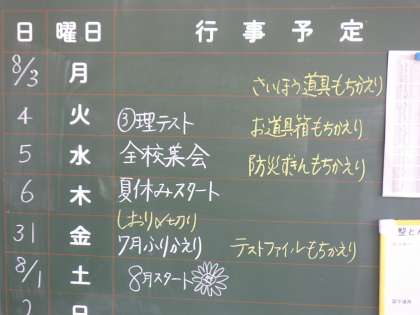 日 曜日 行事予定
8/3 月 さいほう道具もちかえり
4 火 ③理テスト お道具箱もちかえり
5 水 全校集会 防災ずきんもちかえり
6 木 夏休みスタート
しおり〆切り
31 金 7月ふりかえり テストファイルもちかえり
8/1 土 8月スタート
2 日